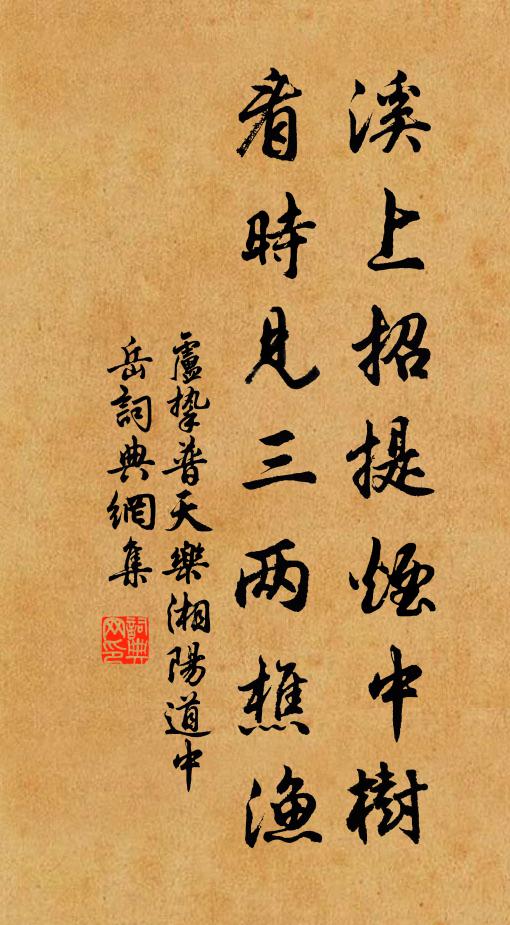 溪上招提煙中樹
看時見三两樵漁
盧摯普天樂湘陽道中
岳詞典網集
詞典网印